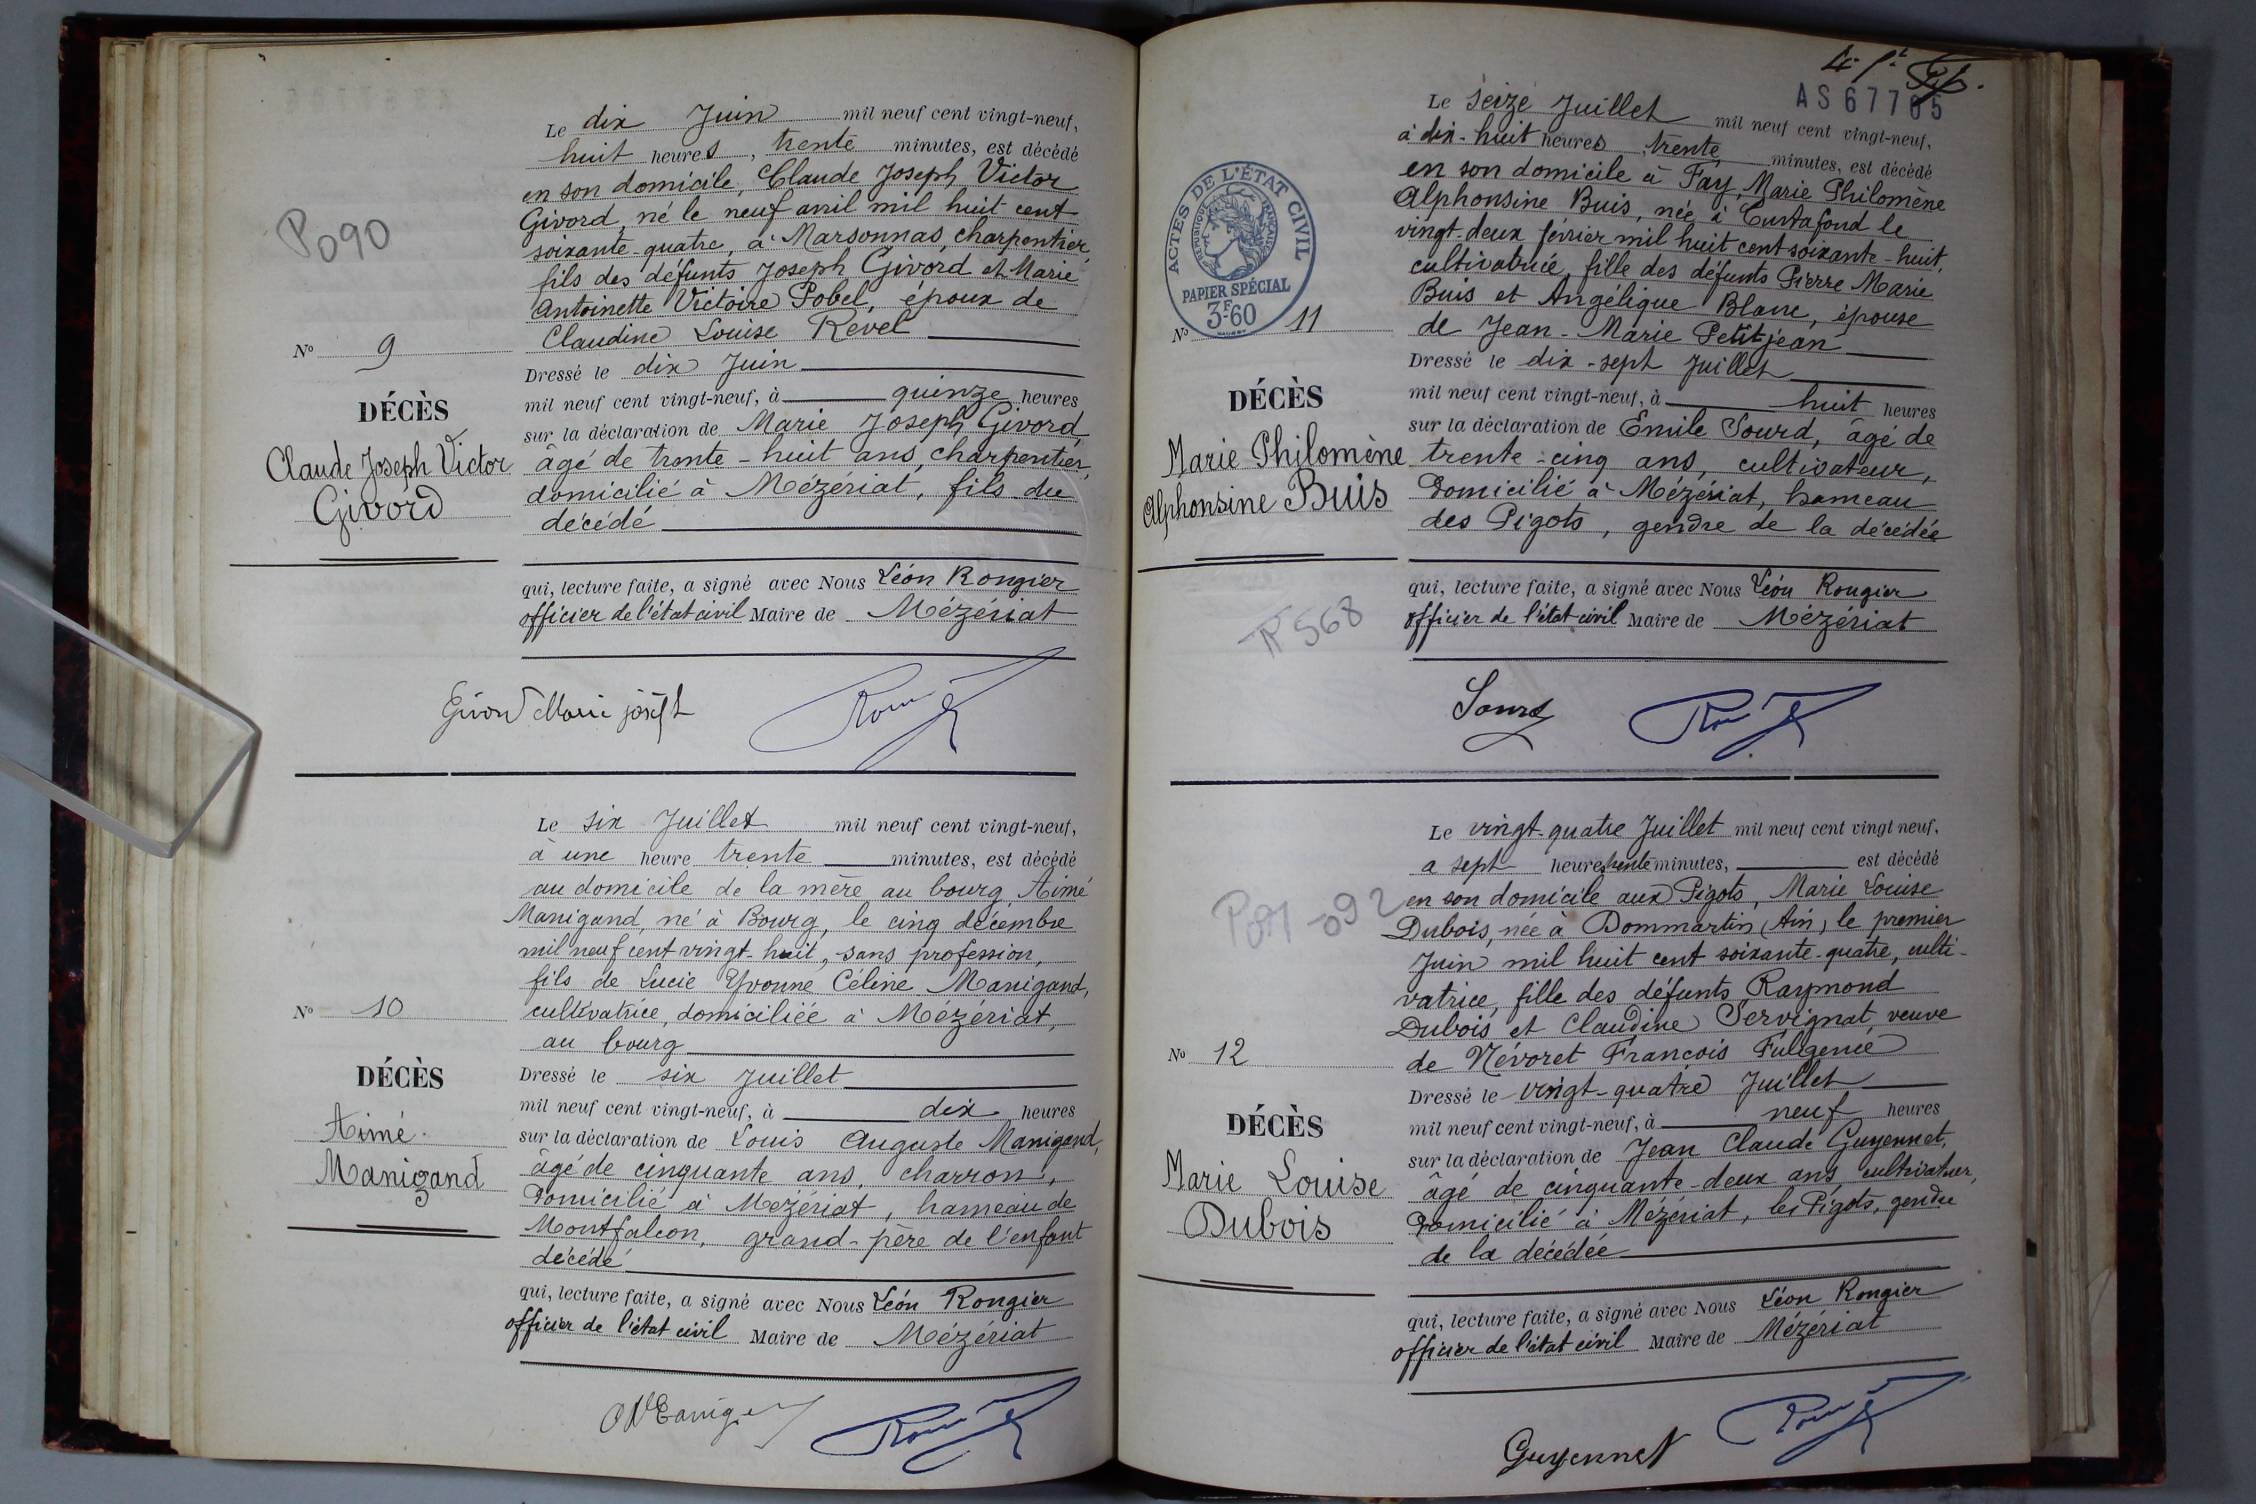 Le dix Juin mil neuf cent vingt-neuf,
huit heures, trente minutes, est décédé
en son domicile, Claude Joseph Victor
Givord, né le neuf avril mil huit cent
soixante-quatre, à Marsonnas, charpentier,
fils des défunts Joseph Givord et Marie
Antoinette Victoire Pobel, époux de
Claudine Louise Revel
Dressé le dix Juin
mil neuf cent vingt-neuf, à quinze heures
sur la déclaration de Marie Joseph Givord,
âgé de trente-huit ans, charpentier,
domicilié à Mézériat, fils du
décédé
qui, lecture faite, a signé avec Nous Léon Rongier
officier de l'état civil Maire de Mézériat
P090
No 9
DÉCÈS
Claude Joseph Victor
Givord
Givord Marie joseph
Le six Juillet mil neuf cent vingt-neuf,
à une heure trente minutes, est décédé
au domicile de la mère au bourg, Aimé
Manigand, né à Bourg, le cinq décembre
mil neuf cent vingt-huit, sans profession,
fils de Lucie Yvonne Céline Manigand,
cultivatrice, domiciliée à Mézériat,
au bourg
Dressé le six Juillet
mil neuf cent vingt-neuf, à dix heures
sur la déclaration de Louis Auguste Manigand,
âgé de cinquante ans, charron,
domicilié à Mézériat, hameau de
Montfalcon, grand-père de l'enfant
décédé
qui, lecture faite, a signé avec Nous Léon Rongier
officier de l'état civil Maire de Mézériat
No 10
DÉCÈS
Aimé
Manigand
AS67705
Le seize Juillet mil neuf cent vingt-neuf,
à dix-huit heures, trente minutes, est décédé
en son domicile à Fay, Marie Philomène
Alphonsine Buis, née à Curtafond le
vingt-deux février mil huit cent soixante-huit,
cultivatrice, fille des défunts Pierre Marie
Buis et Angélique Blanc, épouse
de Jean-Marie Petitjean
Dressé le dix-sept Juillet
mil neuf cent vingt-neuf, à huit heures
sur la déclaration de Emile Sourd, âgé de
trente-cinq ans, cultivateur,
domicilié à Mézériat, hameau
des Pigots, gendre de la décédée
qui, lecture faite, a signé avec Nous Léon Rongier
officier de l'état civil Maire de Mézériat
ACTES DE L'ÉTAT CIVIL
RÉPUBLIQUE FRANÇAISE
PAPIER SPÉCIAL
3F60
No 11
DÉCÈS
Marie Philomène
Alphonsine Buis
P568
Sourd
Le vingt-quatre Juillet mil neuf cent vingt neuf,
a sept heures trente minutes, est décédé
en son domicile aux Pigots, Marie Louise
Dubois, née à Dommartin (Ain) le premier
Juin mil huit cent soixante-quatre, culti-
vatrice, fille des défunts Raymond
Dubois et Claudine Servignat, veuve
de Névoret François Fulgence
Dressé le vingt-quatre Juillet
mil neuf cent vingt-neuf, à neuf heures
sur la déclaration de Jean Claude Guyennet,
âgé de cinquante-deux ans cultivateur,
domicilié à Mézériat, les Pigots, gendre
de la décédée
qui, lecture faite, a signé avec Nous Léon Rongier
officier de l'état civil Maire de Mézériat
P091-092
No 12
DÉCÈS
Marie Louise
Dubois
Guyennet